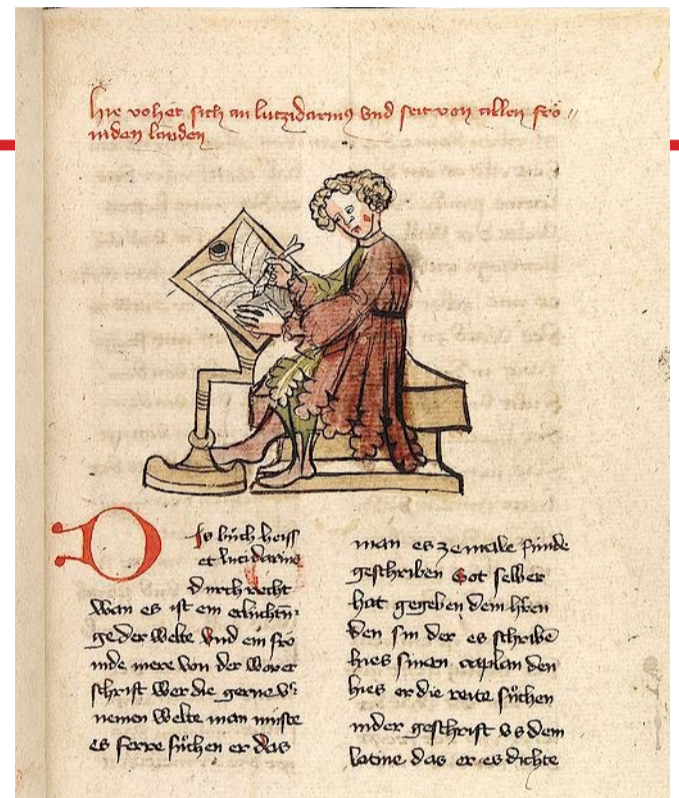 hie vohet sich an lutzidarius vnd seit von allen frö
mden landen
Dis bůch heiss
et lucidarius
durch recht
wan es ist ein erlúchtū
ge der welte vnd ein frö
mde mere von der worer
schrift wer die gerne v
nemen welte man můste
es ferre sůchen er das
man es zemale funde
geschriben Got selber
hat gegeben dem hren
den sin der es schribē
hies sinen caplan den
hies er die reite sůchen
in der geschrift vs dem
latine das er es dichte